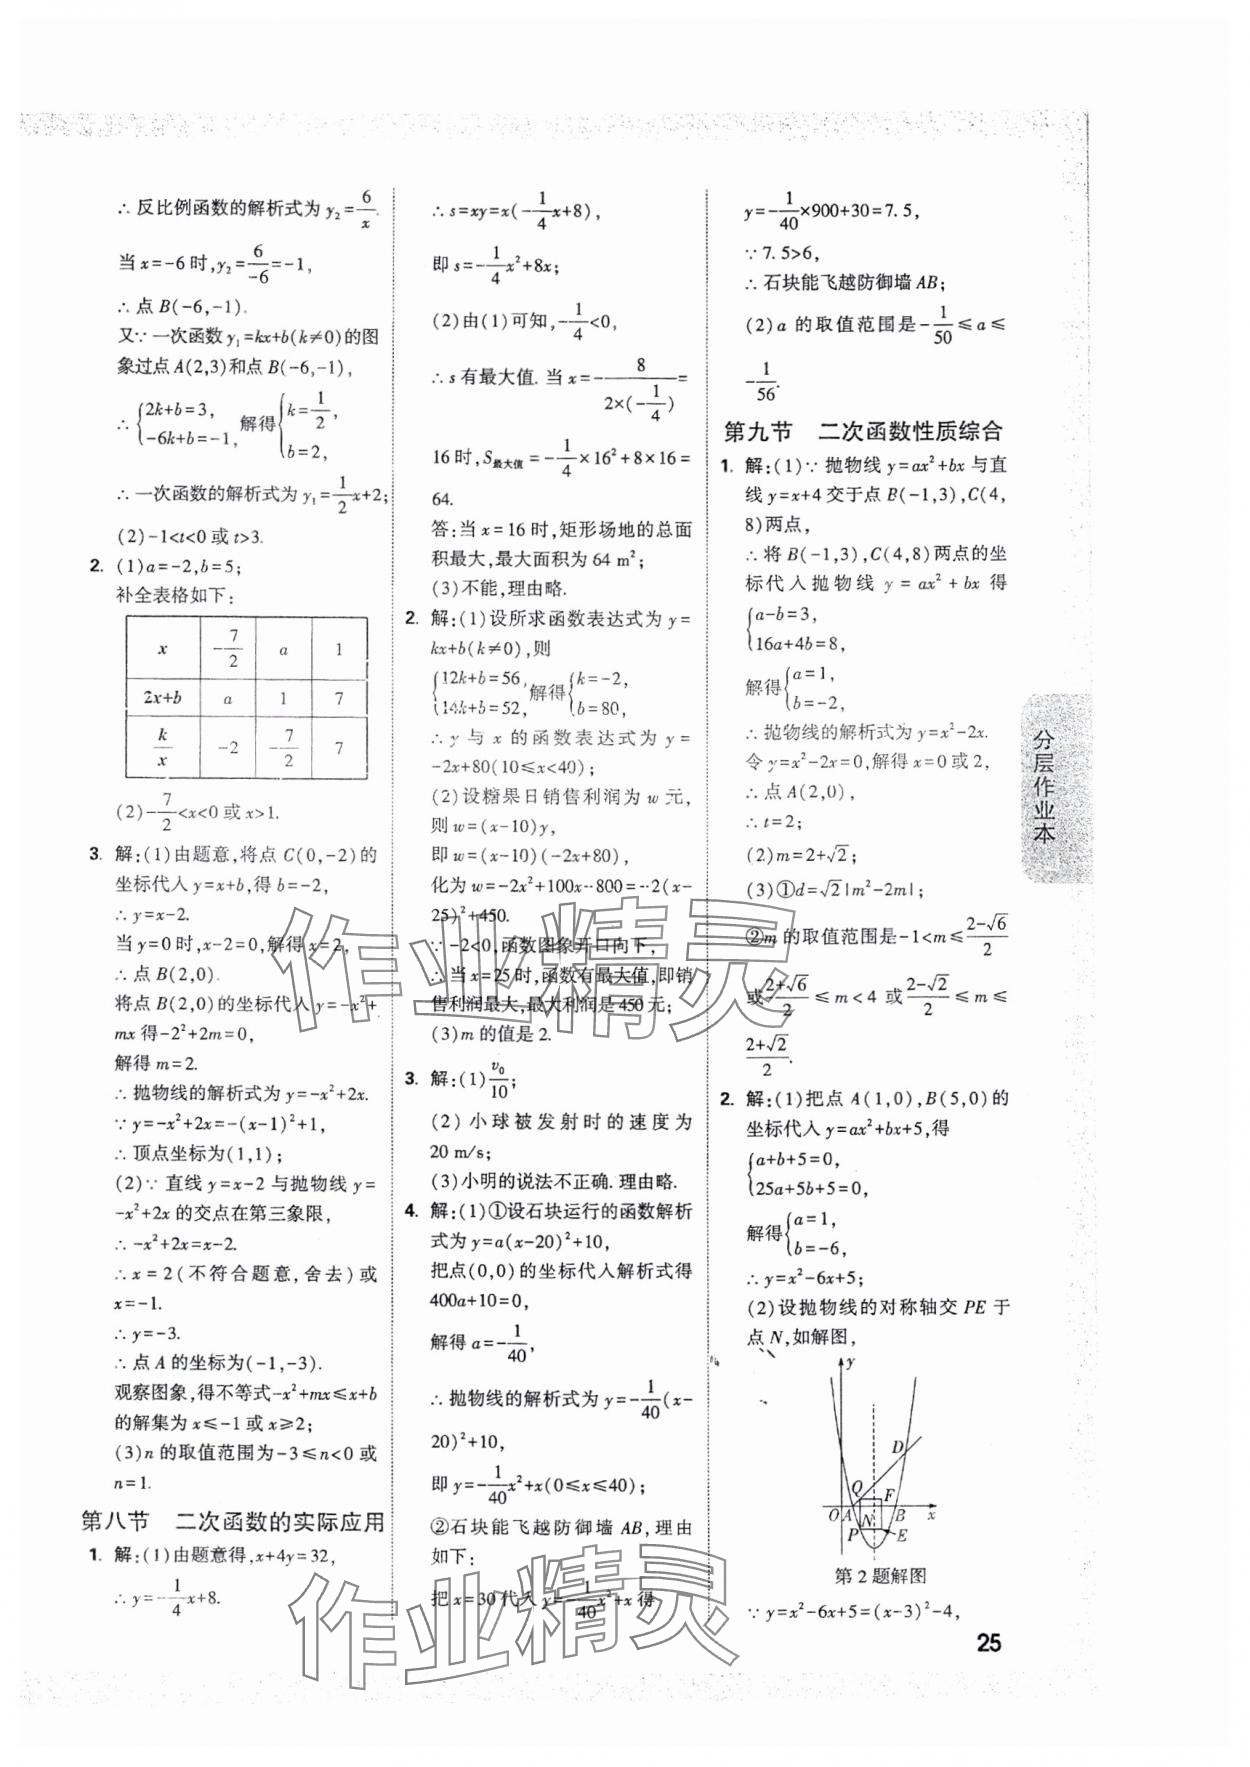 ∴ 反比例函数的解析式为 y₂=6/x.
当 x=-6 时,y₂=6/-6=-1,
∴ 点 B(-6,-1).
又∵ 一次函数 y₁=kx+b(k≠0)的图
象过点 A(2,3)和点 B(-6,-1),
∴ {2k+b=3, -6k+b=-1, 解得{k=1/2, b=2,
∴ 一次函数的解析式为 y₁=1/2x+2;
(2)-1<t<0 或 t>3.
2. (1)a=-2,b=5;
补全表格如下:
x -7/2 a 1
2x+b a 1 7
k/x -2 -7/2 7
(2)-7/2<x<0 或 x>1.
3. 解:(1)由题意,将点 C(0,-2)的
坐标代入 y=x+b,得 b=-2,
∴ y=x-2.
当 y=0 时,x-2=0,解得 x=2,
∴ 点 B(2,0).
将点 B(2,0)的坐标代入 y=-x²+
mx 得-2²+2m=0,
解得 m=2.
∴ 抛物线的解析式为 y=-x²+2x.
∵ y=-x²+2x=-(x-1)²+1,
∴ 顶点坐标为(1,1);
(2)∵ 直线 y=x-2 与抛物线 y=
-x²+2x 的交点在第三象限,
∴ -x²+2x=x-2.
∴ x=2(不符合题意,舍去)或
x=-1.
∴ y=-3.
∴ 点 A 的坐标为(-1,-3).
观察图象,得不等式-x²+mx≤x+b
的解集为 x≤-1 或 x≥2;
(3)n 的取值范围为-3≤n<0 或
n=1.
第八节 二次函数的实际应用
1. 解:(1)由题意得,x+4y=32,
∴ y=-1/4x+8.
∴ s=xy=x(-1/4x+8),
即 s=-1/4x²+8x;
(2)由(1)可知,-1/4<0,
∴ s 有最大值. 当 x=-8/(2×(-1/4))=
16 时,S最大值=-1/4×16²+8×16=
64.
答:当 x=16 时,矩形场地的总面
积最大,最大面积为 64 m²;
(3)不能,理由略.
2. 解:(1)设所求函数表达式为 y=
kx+b(k≠0),则
{12k+b=56, 14k+b=52, 解得{k=-2, b=80,
∴ y 与 x 的函数表达式为 y=
-2x+80(10≤x<40);
(2)设糖果日销售利润为 w 元,
则 w=(x-10)y,
即 w=(x-10)(-2x+80),
化为 w=-2x²+100x-800=-2(x-
25)²+450.
∵ -2<0,函数图象开口向下,
∴ 当 x=25 时,函数有最大值,即销
售利润最大,最大利润是 450 元;
(3)m 的值是 2.
3. 解:(1)v₀/10;
(2)小球被发射时的速度为
20 m/s;
(3)小明的说法不正确. 理由略.
4. 解:(1)①设石块运行的函数解析
式为 y=a(x-20)²+10,
把点(0,0)的坐标代入解析式得
400a+10=0,
解得 a=-1/40,
∴ 抛物线的解析式为 y=-1/40(x-
20)²+10,
即 y=-1/40x²+x(0≤x≤40);
②石块能飞越防御墙 AB,理由
如下:
把 x=30 代入 y=-1/40x²+x 得
y=-1/40×900+30=7.5,
∵ 7.5>6,
∴ 石块能飞越防御墙 AB;
(2)a 的取值范围是-1/50≤a≤
-1/56.
第九节 二次函数性质综合
1. 解:(1)∵ 抛物线 y=ax²+bx 与直
线 y=x+4 交于点 B(-1,3),C(4,
8)两点,
∴ 将 B(-1,3),C(4,8)两点的坐
标代入抛物线 y=ax²+bx 得
{a-b=3, 16a+4b=8,
解得{a=1, b=-2,
∴ 抛物线的解析式为 y=x²-2x.
令 y=x²-2x=0,解得 x=0 或 2,
∴ 点 A(2,0),
∴ t=2;
(2)m=2+√2;
(3)①d=√2|m²-2m|;
②m 的取值范围是-1<m≤(2-√6)/2
或(2+√6)/2≤m<4 或(2-√2)/2≤m≤
(2+√2)/2.
2. 解:(1)把点 A(1,0),B(5,0)的
坐标代入 y=ax²+bx+5,得
{a+b+5=0, 25a+5b+5=0,
解得{a=1, b=-6,
∴ y=x²-6x+5;
(2)设抛物线的对称轴交 PE 于
点 N,如解图,
y
D
Q F
O A N B x
P E
第 2 题解图
∵ y=x²-6x+5=(x-3)²-4,
分层作业本
25
作业精灵
作业精灵